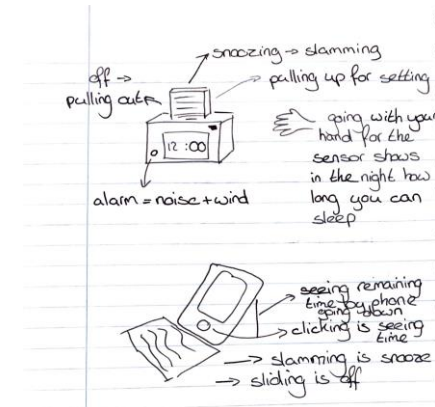 snoozing → slamming
off →
pulling out
pulling up for setting
12:00
going with your
hand for the
sensor shows
in the night how
long you can
sleep
alarm = noise + wind
seeing remaining
time by phone
going down
clicking is seeing
time
→ slamming is snooze
→ sliding is off